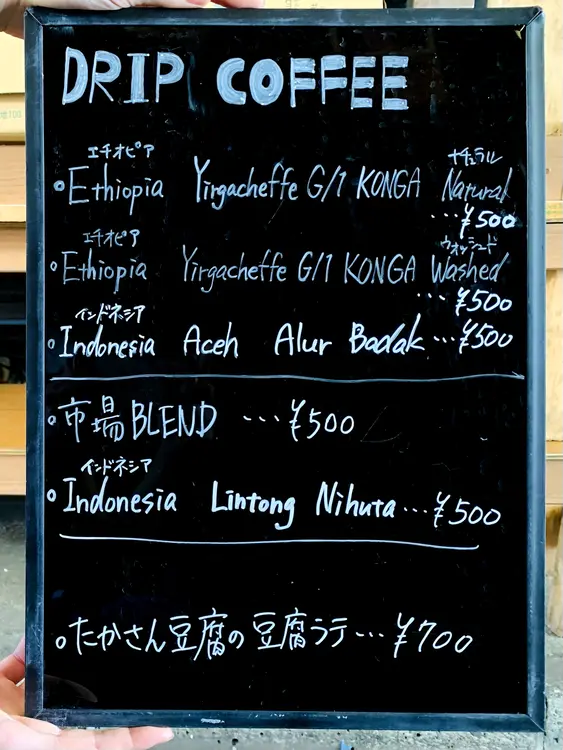 DRIP COFFEE
エチオピア ナチュラル
○Ethiopia Yirgacheffe G/1 KONGA Natural
…¥500
エチオピア ウォッシュード
○Ethiopia Yirgacheffe G/1 KONGA Washed
…¥500
インドネシア
○Indonesia Aceh Alur Badak…¥500
○市場BLEND …¥500
インドネシア
○Indonesia Lintong Nihuta…¥500
○たかさん豆腐の豆腐ラテ…¥700